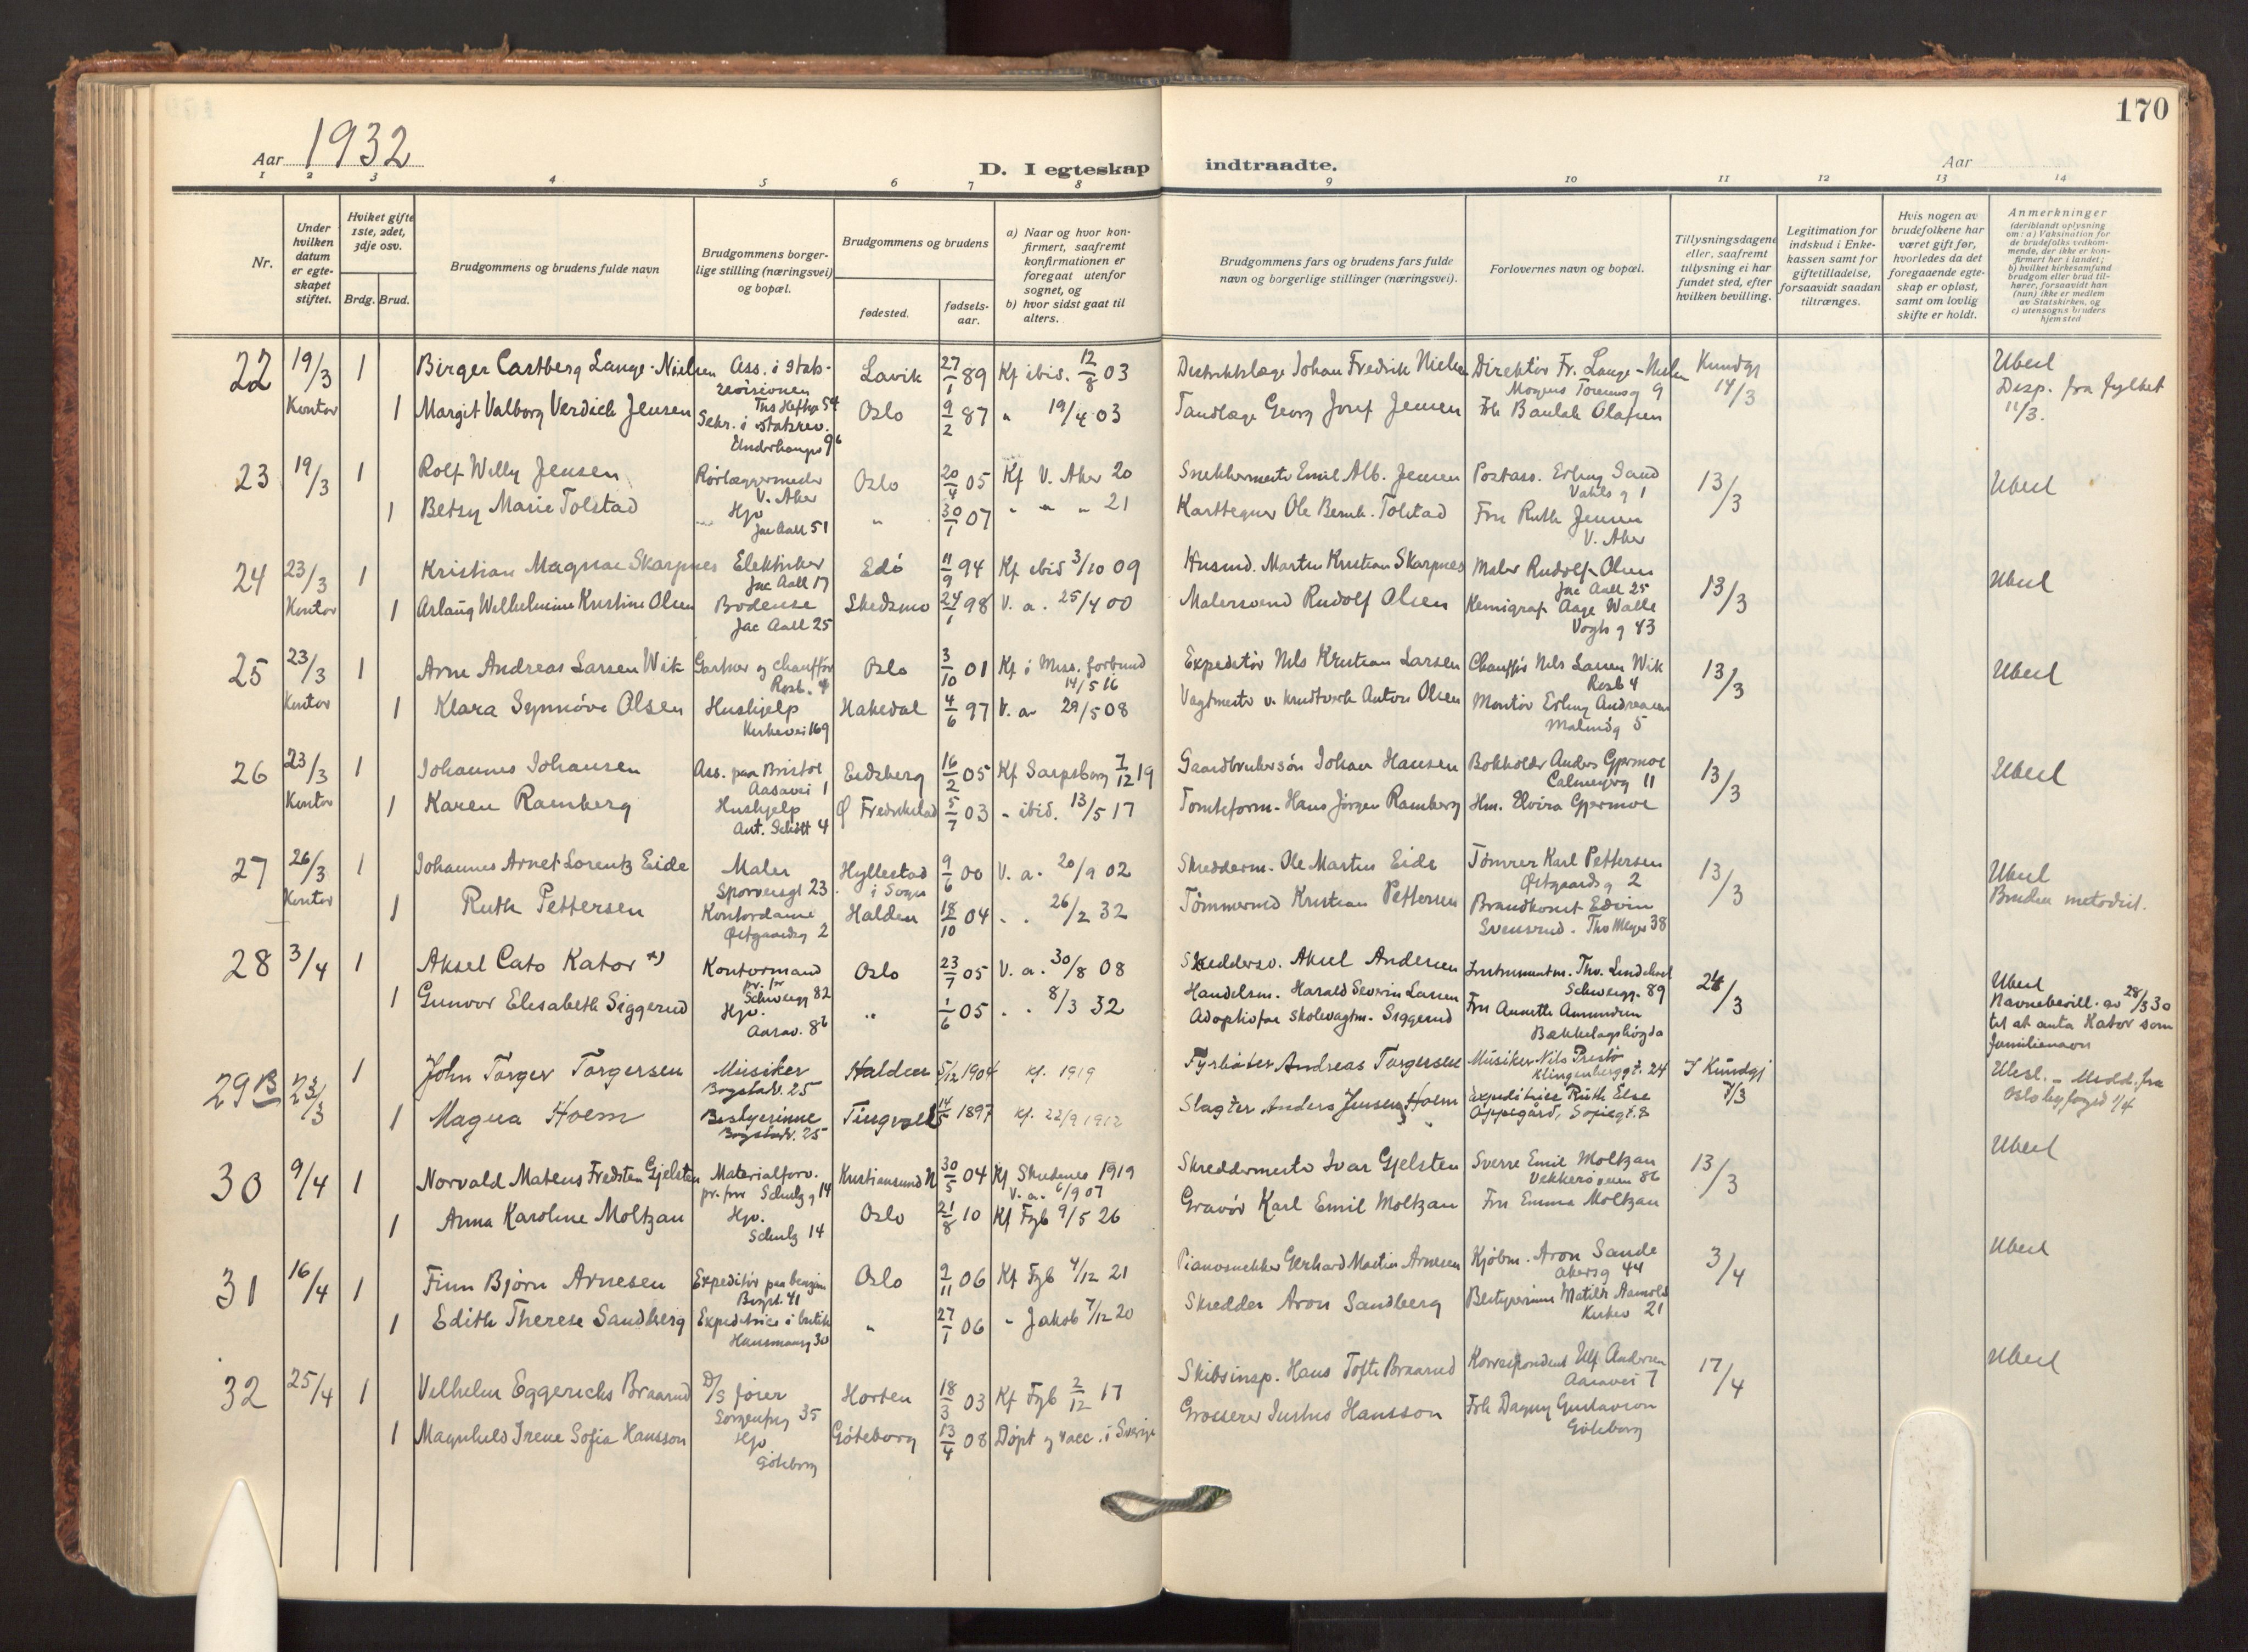 170
Aar 1932
D. I egteskap indtraadte.
Aar
1 2 3 4 5 6 7 8 9 10 11 12 13 14
Nr.
Under hvilken datum er egteskapet stiftet.
Hvilket gifte 1ste, 2det, 3dje osv.
Brdg. Brud.
Brudgommens og brudens fulde navn
Brudgommens borgerlige stilling (næringsvei) og bopæl.
Brudgommens og brudens
fødested.
fødsels-aar.
a) Naar og hvor konfirmert, saafremt konfirmationen er foregaat utenfor sognet, og
b) hvor sidst gaat til alters.
Brudgommens fars og brudens fars fulde navn og borgerlige stillinger (næringsvei).
Forlovernes navn og bopæl.
Tillysningsdagene eller, saafremt tillysning ei har fundet sted, efter hvilken bevilling.
Legitimation for indskud i Enkekassen samt for giftetilladelse, forsaavidt saadan tiltrænges.
Hvis nogen av brudefolkene har været gift før, hvorledes da det foregaaende egteskap er opløst, samt om lovlig skifte er holdt.
Anmerkninger (deriblandt oplysning om: a) Vaksination for de brudefolks vedkommende, der ikke er konfirmert her i landet; b) hvilket kirkesamfund brudgom eller brud tilhører, forsaavidt han (hun) ikke er medlem av Statskirken, og c) utensogns bruders hjemsted
22 19/3 1 Birger Castberg Lange-Nielsen Ass. i Statsrevisionen Ths Heftyg 54 Lavik 27/1 89 Kf ibid. 12/8 03 Distriktslæge Johan Fredrik Nielsen Direktör Fr. Lange-Nielsen 9 Kundgj 14/3 Ubesl Disp. fra fylket 11/3.
Kontor 1 Margit Valborg Verdich Jensen Sekr. i Statsrev. Oslo 9/2 87 " 19/4 03 Tandlæge Georg Josef Jensen Frk Olafsen
23 19/3 1 Rolf Willy Jensen Rørlæggermester V. Aker Oslo 20/4 05 Kf V. Aker 20 Snekkermester Emil Alb. Jensen Postass. Erling Sand Vahls g 1 13/3 Ubesl
1 Betsy Marie Tolstad Hjv Jac Aall 51 " 30/1 07 " " " 21 Karttegner Ole Bernh. Tolstad Fru Ruth Jensen V. Aker
24 23/3 1 Kristian Magnar Skarpnes Elektriker Jac Aall 17 Edö 11/9 94 Kf ibid 3/10 09 Husmd. Martin Kristian Skarpnes Maler Rudolf Olsen Jac Aall 25 13/3 Ubesl
Kontor 1 Aslaug Wilhelmine Kristine Olsen Bødense Jac Aall 25 Skedsmo 24/1 98 V. a. 25/4 00 Malersvend Rudolf Olsen Kemigraf Aage Walle Vogts g 43
25 23/3 1 Arne Andreas Larsen Wik Gartner og chauffør Rosb. 4 Oslo 3/10 01 Kf i Miss. forbund 14/5 16 Expeditör Nils Kristian Larsen Chaufför Nils Larsen Wik Rosb 4 13/3 Ubesl
Kontor 1 Klara Synnöve Olsen Hushjelp Kirkevei 169 Hakedal 4/6 97 V. a 29/5 08 Vagtmester v. krudtverk Anton Olsen Montör Erling Andreassen Malmög 5
26 23/3 1 Johannes Johansen Ass. paa Bristol Aasavei 1 Eidsberg 16/2 05 Kf Sarpsborg 7/12 19 Gaardbrukersön Johan Hansen Bokholder Anders Gjermoe Calmeyerg 11 13/3 Ubesl
Kontor 1 Karen Ramberg Hushjelp Ant. Schött 4 Ø Fredrikstad 5/7 03 " ibid. 13/5 17 Tomteform. Hans Jörgen Ramberg Hm. Elvira Gjermoe
27 26/3 1 Johannes Arnet Lorentz Eide Maler Sporveisgt 23 Hyllestad i Sogn 9/6 00 V. a. 20/9 02 Skredderm. Ole Martin Eide Tömrer Karl Pettersen Östgaardsg 2 13/3 Ubesl Bruden metodist.
Kontor 1 Ruth Pettersen Kontordame Östgaardsg 2 Halden 18/10 04 " " 26/2 32 Tömmermd Kristian Pettersen Brandkonst Edvin Svensrud. Ths Meyer 38
28 3/4 1 Aksel Cato Kator x) Kontormand pr. fr Schweigg 82 Oslo 23/7 05 V. a. 30/8 08 Skreddersv. Aksel Andersen Instrumentm. Thv. Schweigg. 89 24/3 Ubesl Navnebevill. av 28/3 30 til at anta Kator som familienavn
1 Gunvor Elisabeth Siggerud Hjv. Aasav. 8b " 1/6 05 " " 8/3 32 Handelsm. Harald Severin Larsen Adoptivfar Skolevagtm. Siggerud Fru Annette Amundsen Bækkelagshögda
29 B 23/3 1 John Torger Torgersen Musiker Bogstadv. 25 Halden 5/12 1904 Kf. 1919 Fyrböter Andreas Torgersen Musiker Nils Prestö Klingenberggt. 24 I Kundgj 7/3 Ubesl. - Medd. fra Oslo byfoged 1/4
1 Magna Hoem Bestyrerinne Bogstadv. 25 Tingvoll 14/5 1897 Kf. 22/9 1912 Slagter Anders Jensen Hoem Expeditrice Ruth Else Oppegård, Sofiegt. 8
30 9/4 1 Norvald Mateus Fredsten Gjelsten Materialforv. pr. fru Schulz g 14 Kristiansund N 30/5 04 Kf Skudenes 1919 V. a. 6/9 07 Skreddermester Ivar Gjelsten Sverre Emil Moltzau Vækkerøveien 86 13/3 Ubesl
1 Anna Karoline Moltzau Hjv. Schulz 14 Oslo 21/8 10 Kf Fgb 9/5 26 Gravör Karl Emil Moltzau Fru Emma Moltzau
31 16/4 1 Finn Björn Arnesen Expeditör paa bensin 41 Oslo 9/11 06 Kf Fgb 4/12 21 Pianosnekker Gerhard Martin Arnesen Kjöbm. Aron Sande Akersg 44 3/4 Ubesl
1 Edith Therese Sandberg Expeditrice i butik Hausmannsg 30 " 27/1 06 " Jakob 7/12 20 Skredder Aron Sandberg Bestyrerinne Matilde Kirkev 21
32 25/4 1 Vilhelm Eggerichs Braarud D/S förer Sorgenfrig 35 Horten 18/3 03 Kf Fgb 2/12 17 Skibsinsp. Hans Tofte Braarud Korrespondent Ulf Andersen Aasavei 7 17/4 Ubesl
1 Magnhild Irene Sofia Hansson Hjv Göteborg Göteborg 13/4 08 Döpt og vacc. i Sverige Grosserer Justus Hansson Frk Dagny Gustavson Göteborg